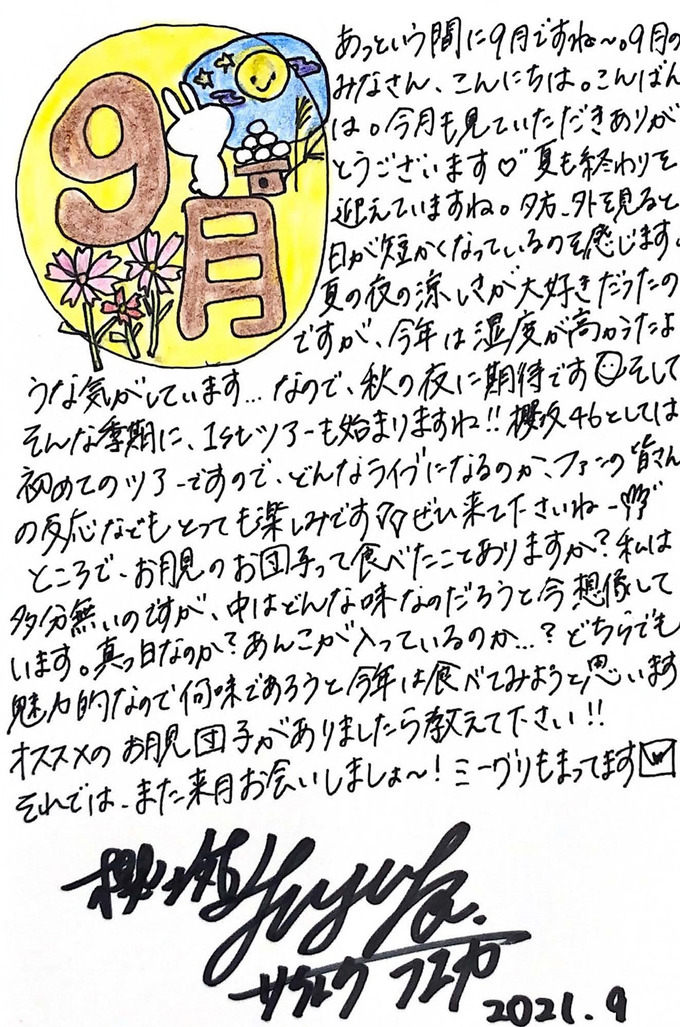 9月
あっという間に9月ですね〜。9月の
みなさん、こんにちは。こんばん
は。今月も見ていただきありが
とうございます♡夏も終わりを
迎えていますね。夕方、外を見ると
日が短かくなっているのを感じます。
夏の夜の涼しさが大好きだったの
ですが、今年は湿度が高かったよ
うな気がしています…なので、秋の夜に期待です☺そして
そんな季節に、1stツアーも始まりますね!!櫻坂46としては
初めてのツアーですので、どんなライブになるのか、ファンの皆さん
の反応などもとっても楽しみです☆☆ぜひ来て下さいね-
ところで、お月見のお団子って食べたことありますか?私は
多分無いのですが、中はどんな味なのだろうと今想像して
います。真っ白なのか?あんこが入っているのか…?どちらでも
魅力的なので何味であろうと今年は食べてみようと思います
オススメのお月見団子がありましたら教えて下さい!!
それでは、また来月お会いしましょ〜!ミーグリもまってます
櫻坂
fuyuka.
サイトウ フユカ
2021.9